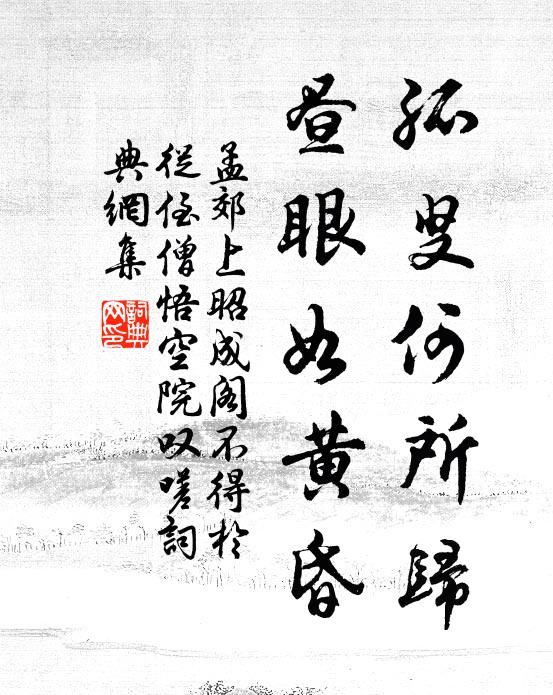 孤叟何所歸
晝眼如黃昏
孟郊上昭成閣不得於
從侄僧悟空院叹嗟詞
典網集
詞典網印